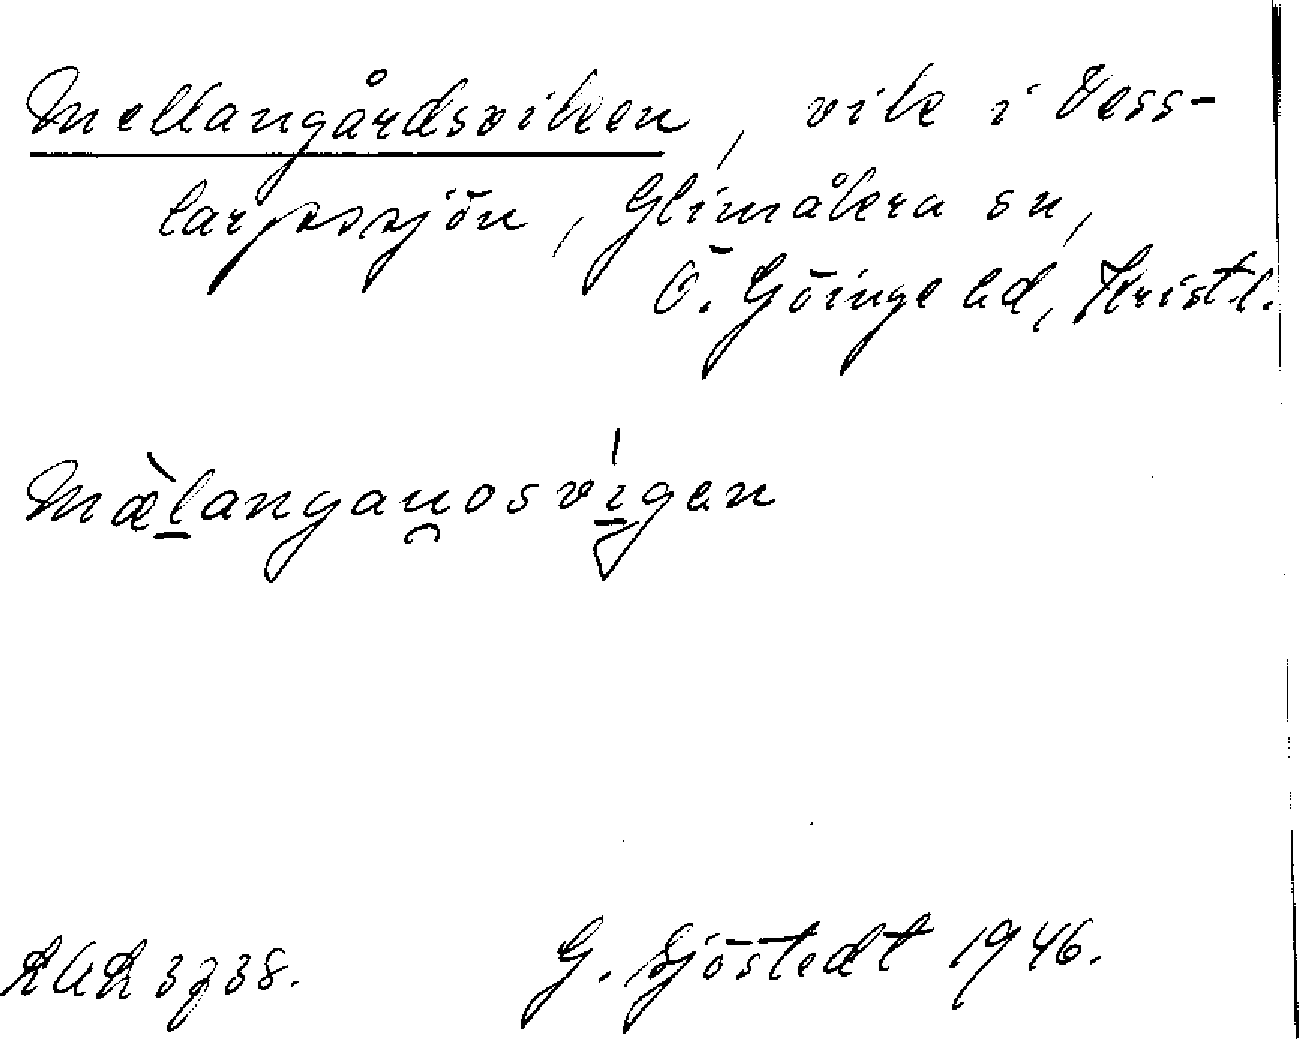 Mellangårdsviken, vik i Vess-
larpssjön, Glimåkra sn,
Ö. Göinge hd, Kristl.
Mæ̀l̲angau̯osví̲gen
G. Sjöstedt 1946.